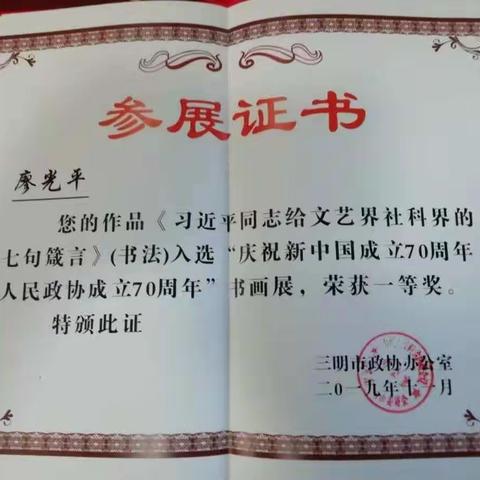 参展证书
廖光平
您的作品《习近平同志给文艺界社科界的
七句箴言》(书法)入选“庆祝新中国成立70周年
人民政协成立70周年”书画展，荣获一等奖。
特颁此证
三明市政协办公室
二〇一九年十一月